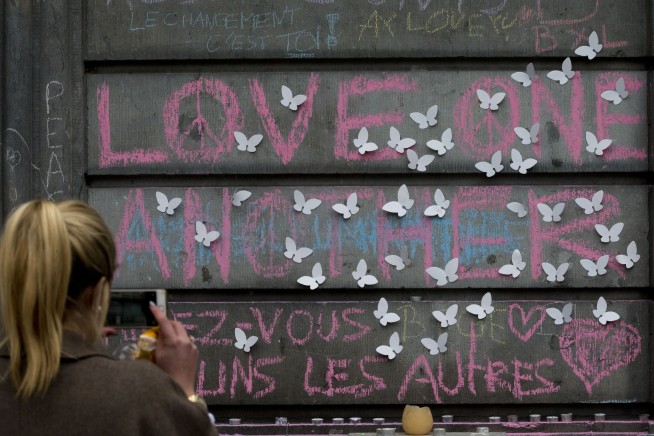 LE CHANGEMENT
C'EST TOI!
LOVE ONE
ANOTHER
EZ-VOUS
UNS LES AUTRES